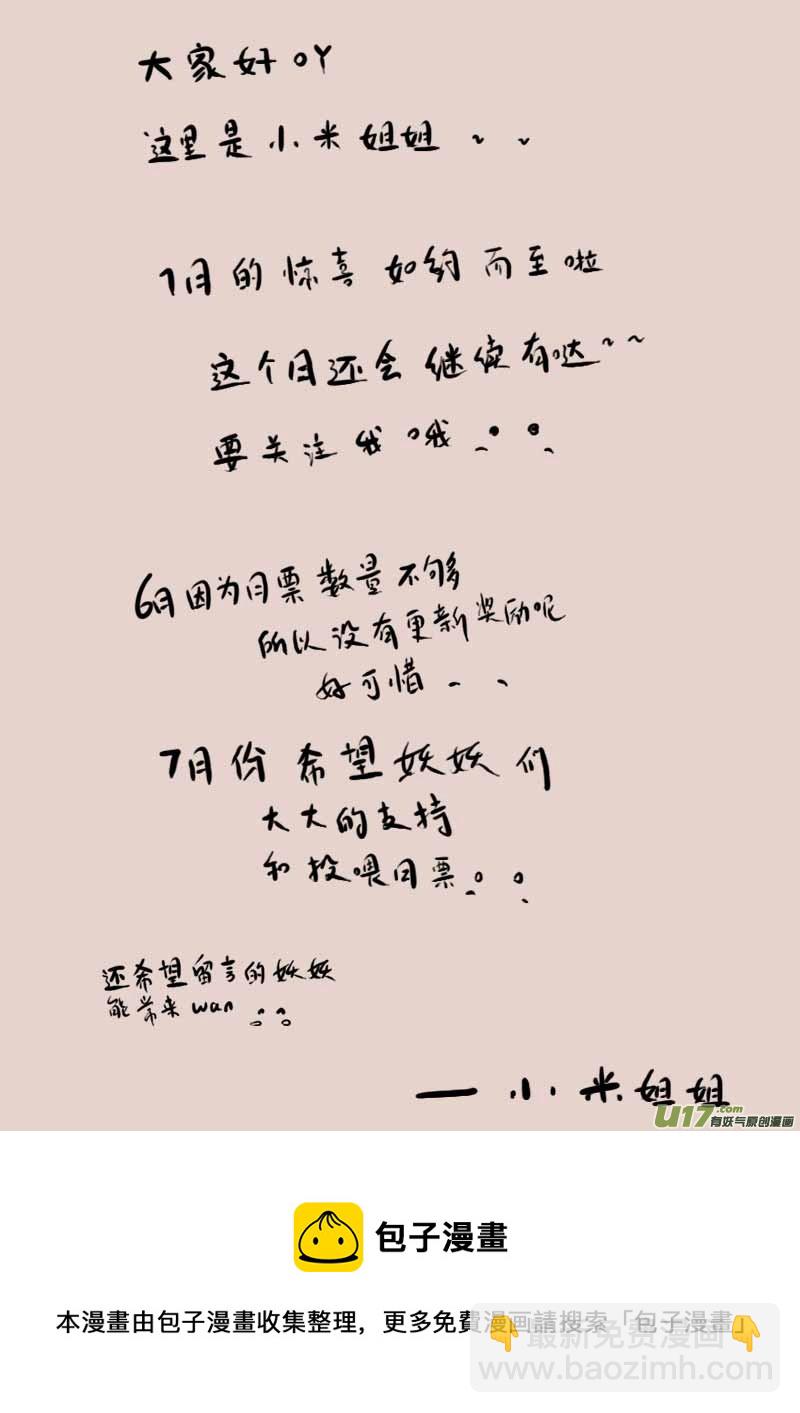 大家好吖
这里是小米姐姐~~
7月的惊喜如约而至啦
这个月还会继续有哒~~
要关注我哦
6月因为月票数量不够
所以没有更新奖励呢
好可惜
7月份希望妖妖们
大大的支持
和投喂月票
还希望留言的妖妖
能常来wan
—小米姐姐
U17.com
有妖气原创漫画
包子漫畫
本漫畫由包子漫畫收集整理，更多免費漫画請搜索「包子漫畫」
👇最新免费漫画👇
www.baozimh.com